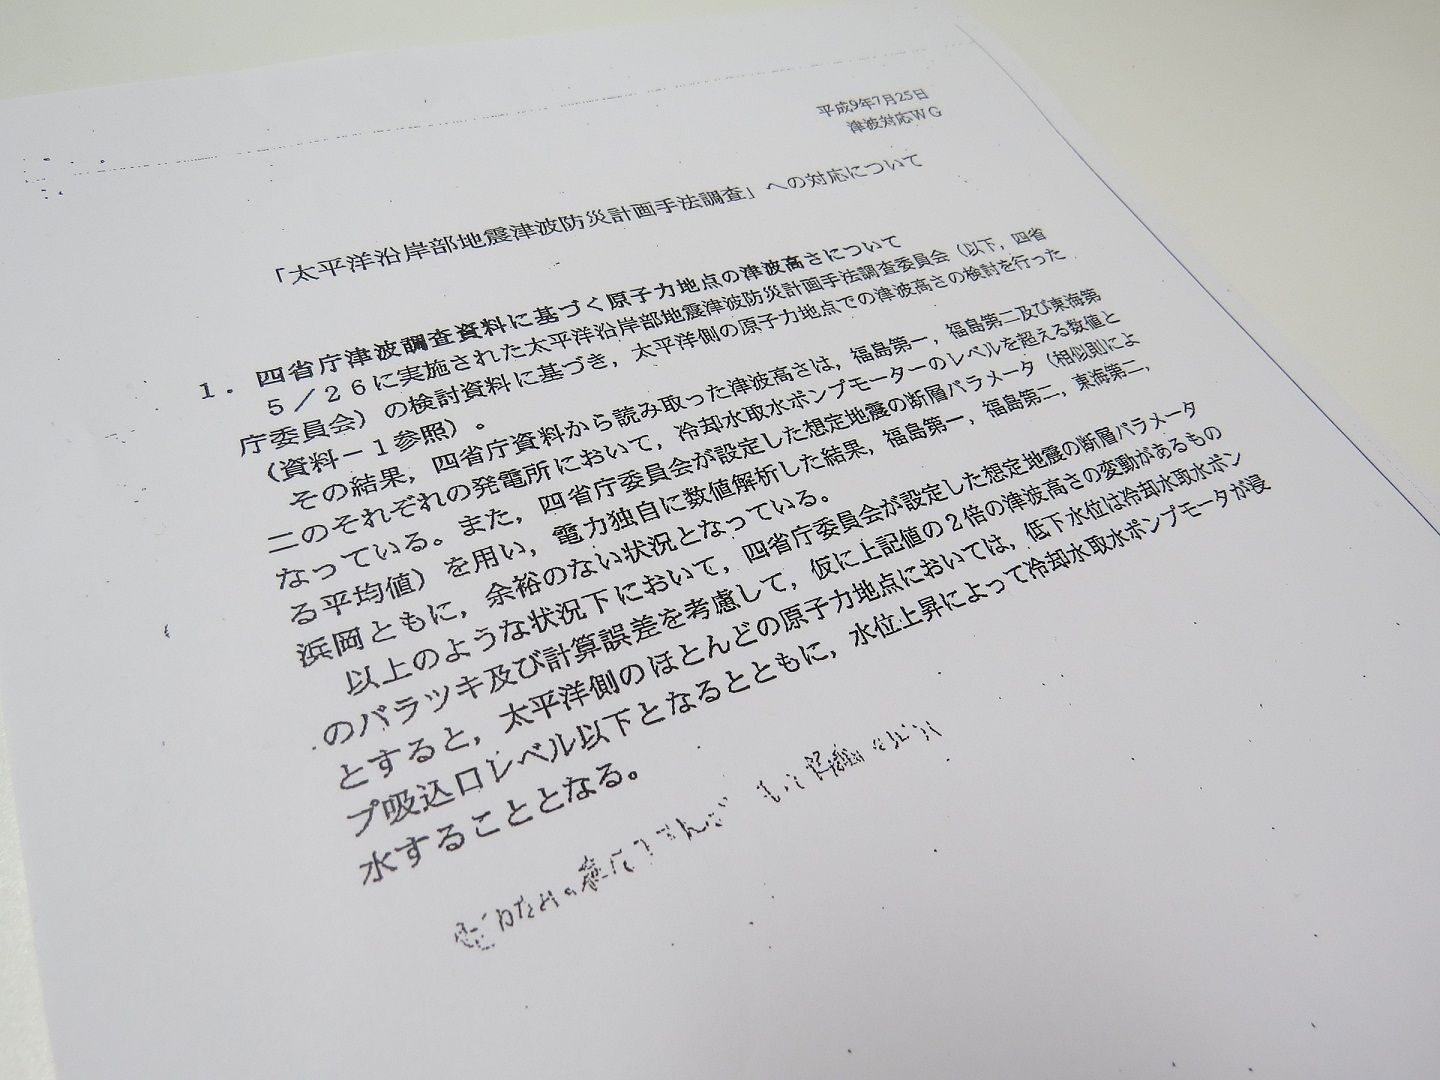 平成9年7月25日
津波対応WG
「太平洋沿岸部地震津波防災計画手法調査」への対応について
1．四省庁津波調査資料に基づく原子力地点の津波高さについて
5／26に実施された太平洋沿岸部地震津波防災計画手法調査委員会（以下，四省
庁委員会）の検討資料に基づき，太平洋側の原子力地点での津波高さの検討を行った
（資料－1参照）。
その結果，四省庁資料から読み取った津波高さは，福島第一，福島第二及び東海第
二のそれぞれの発電所において，冷却水取水ポンプモーターのレベルを超える数値と
なっている。また，四省庁委員会が設定した想定地震の断層パラメータ（相似則によ
る平均値）を用い，電力独自に数値解析した結果，福島第一，福島第二，東海第二，
浜岡ともに，余裕のない状況となっている。
以上のような状況下において，四省庁委員会が設定した想定地震の断層パラメータ
のバラツキ及び計算誤差を考慮して，仮に上記値の2倍の津波高さの変動があるもの
とすると，太平洋側のほとんどの原子力地点においては，低下水位は冷却水取水ポン
プ吸込口レベル以下となるとともに，水位上昇によって冷却水取水ポンプモータが浸
水することとなる。